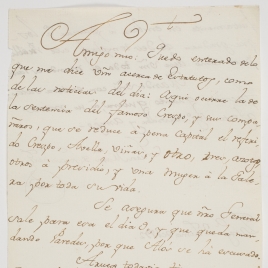 Amigo mio: Quedo enterado de lo
que me dice Vm. acerca de Estatutos, como
de las noticias del dia: Aqui ocurre la de
la sentencia del famoso Crespo, y sus compa-
ñeros, que se reduce á pena Capital el referi-
do Crespo, y otro, tres, azotes
otros á presidio, y una Muger á la Gale-
ra por toda su vida.
Se asegura que ntro General
sale para con el dia 8, y que queda man-
dando Paredes, por que se ha escusado.